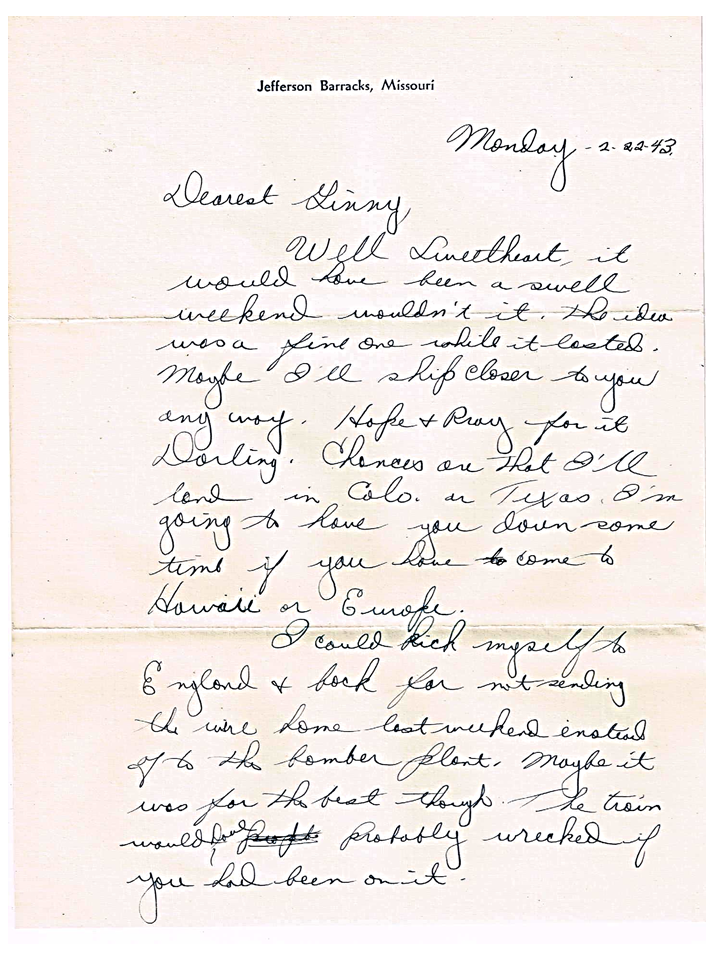 Jefferson Barracks, Missouri
Monday - 2-22-43.
Dearest Ginny,
Well Sweetheart, it
would have been a swell
weekend wouldn't it. The idea
was a fine one while it lasted.
Maybe I'll ship closer to you
any way. Hope & Pray for it
Darling. Chances are that I'll
land in Colo. or Texas. I'm
going to have you down some
time if you have to come to
Hawaii or Europe.
I could kick myself to
England & back for not sending
the wire home last weekend instead
of to the bomber plant. Maybe it
was for the best though. The train
would have probably wrecked if
you had been on it.